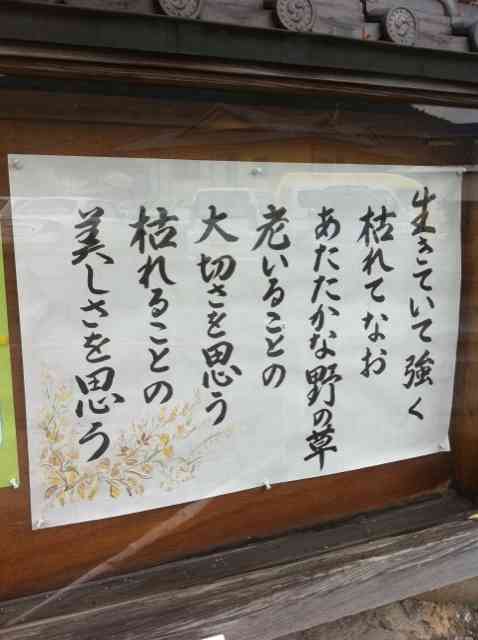 生きていて強く
枯れてなお
あたたかな野の草
老いることの
大切さを思う
枯れることの
美しさを思う